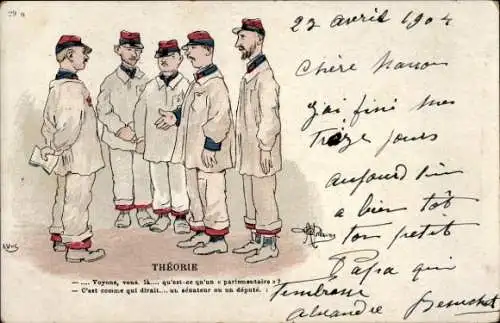 79 a
22 avril 1904
Chère Manon
j'ai fini mes
treize jours
aujourd'hui
a bien tôt
ton petit
Papa qui
t'embrasse
Alexandre
THÉORIE
— .... Voyons, vous là.... qu'est-ce qu'un « parlementaire » ?
— C'est comme qui dirait.... un sénateur ou un député. :